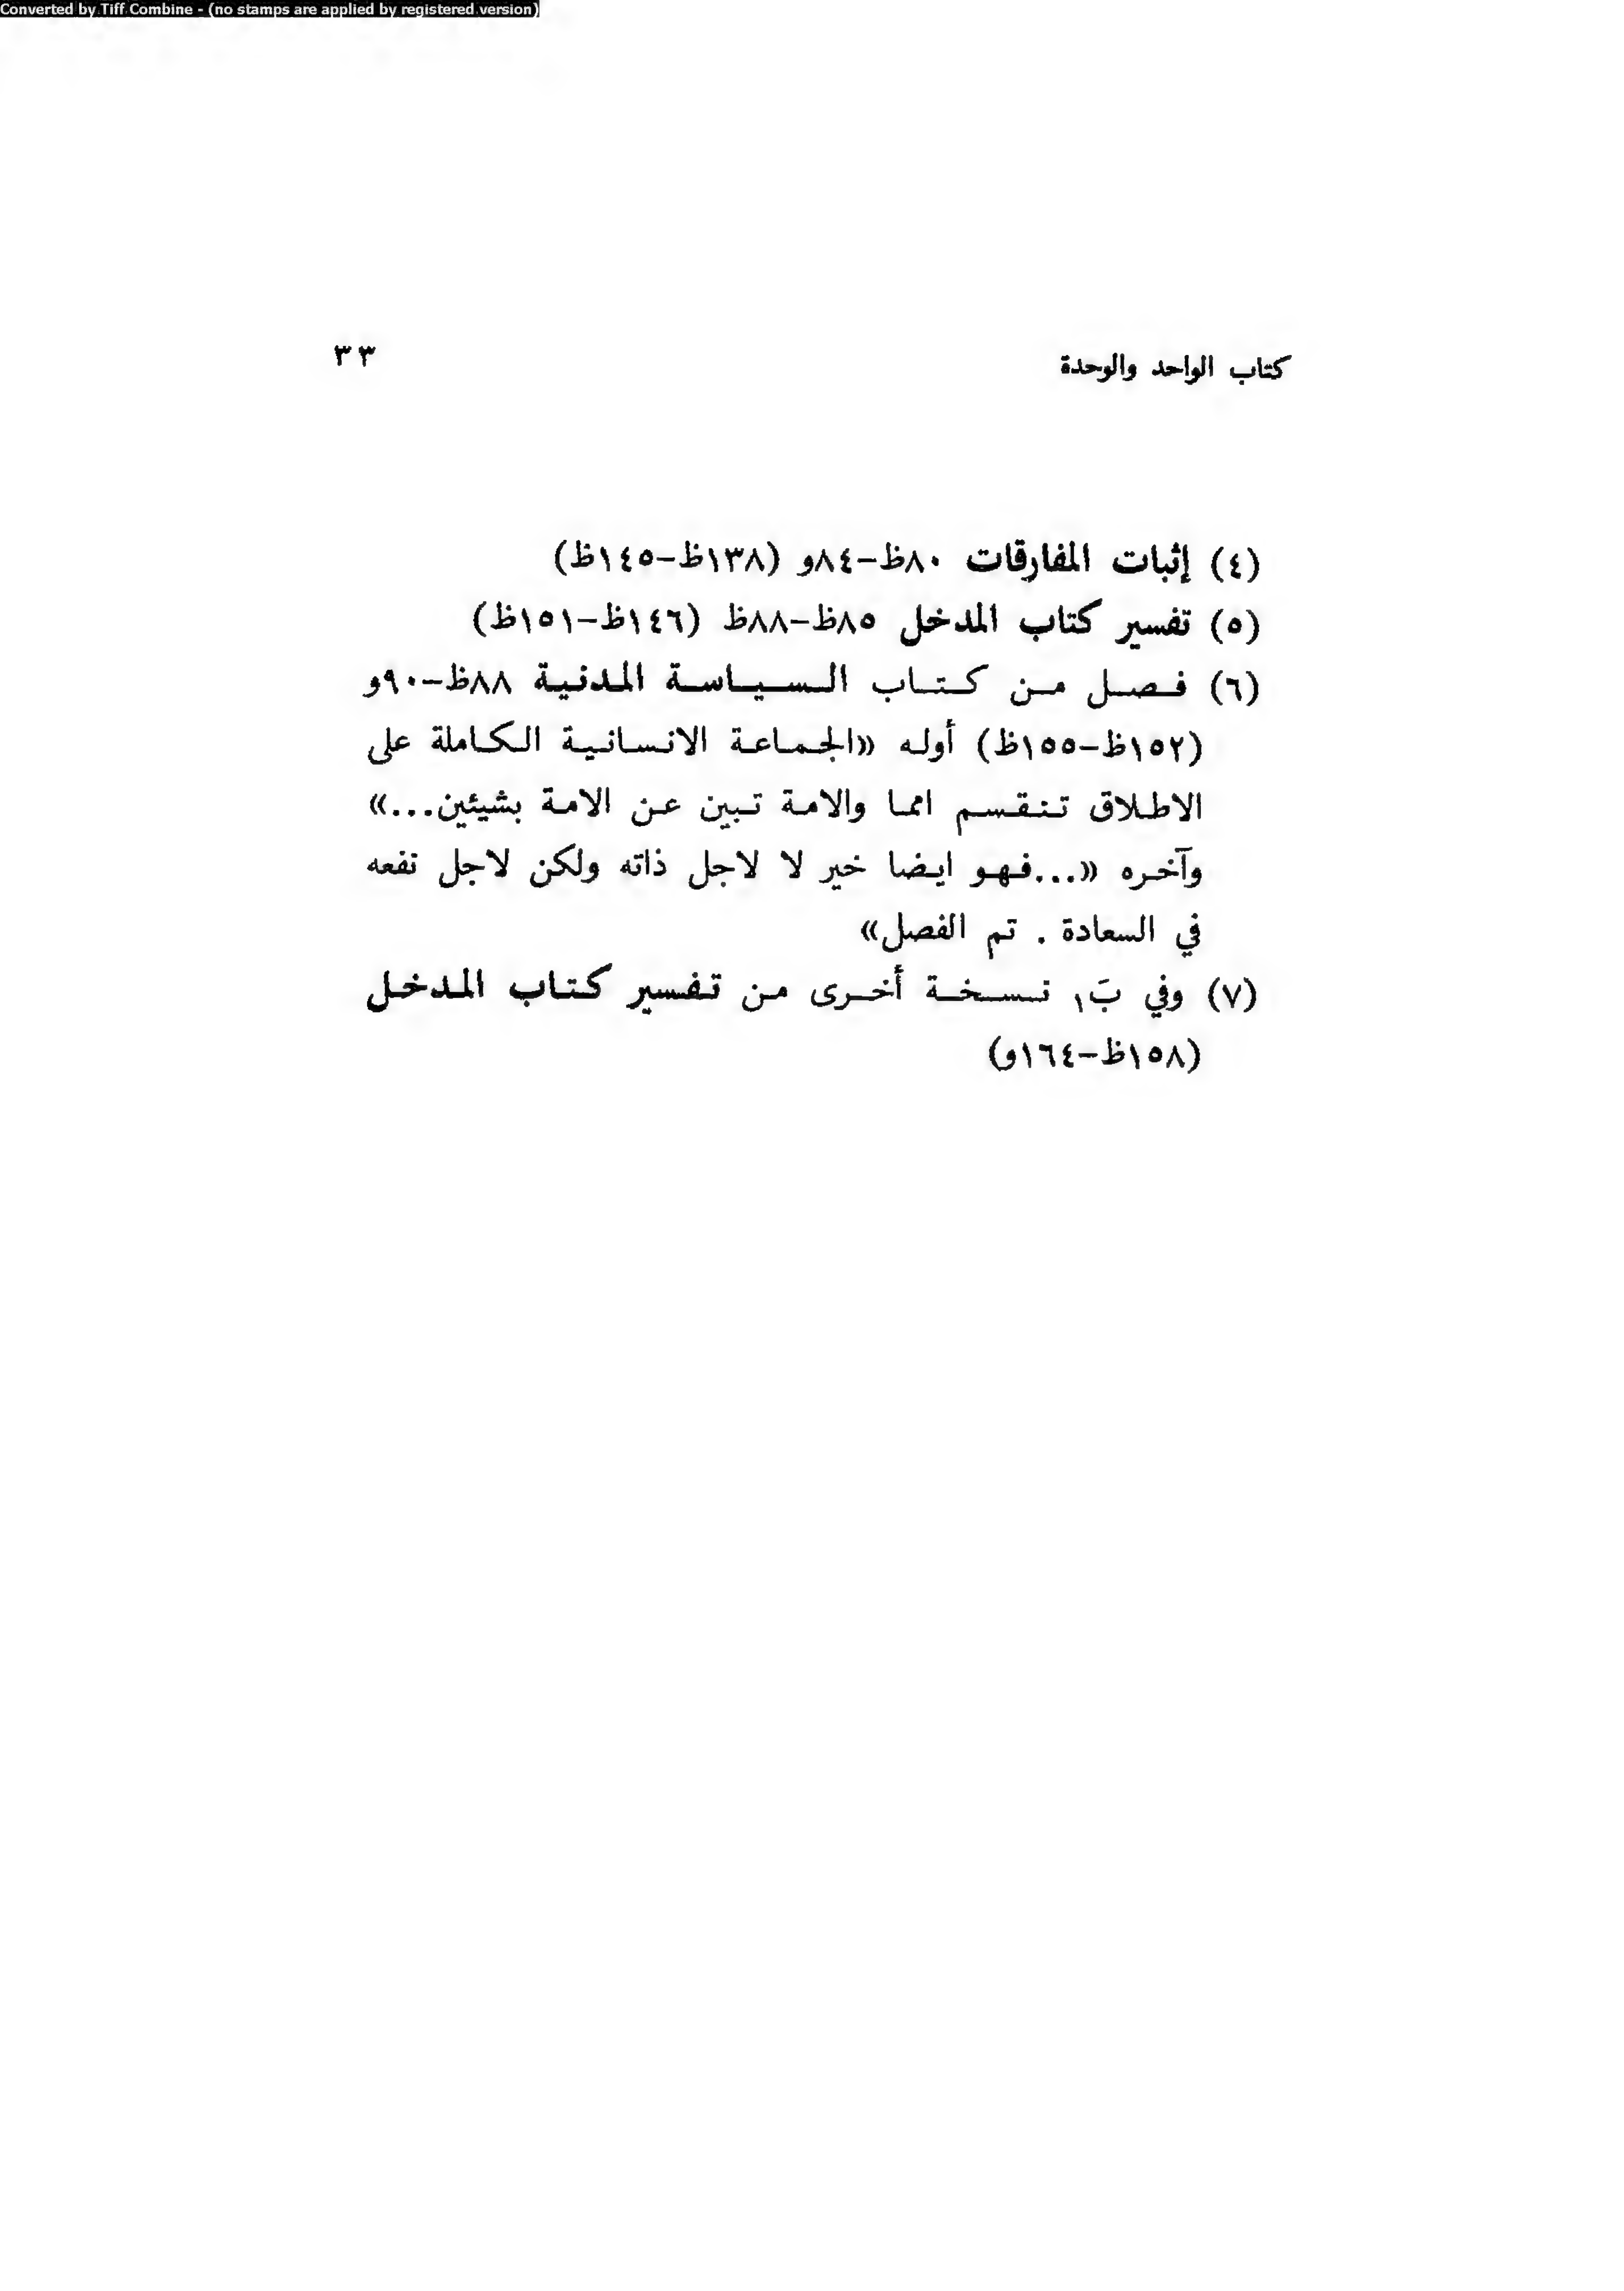 Converted by Tiff Combine - (no stamps are applied by registered version)
كتاب الواحد والوحدة ٣٣
(٤) إثبات المفارقات ٨٠ظ-٨٤و (١٣٨ظ-١٤٥ظ)
(٥) تفسير كتاب المدخل ٨٥ظ-٨٨ظ (١٤٦ظ-١٥١ظ)
(٦) فصل من كتاب السياسة المدنية ٨٨ظ-٩٠و
(١٥٢ظ-١٥٥ظ) أوله «الجماعة الانسانية الكاملة على
الاطلاق تنقسم امما والامة تبين عن الامة بشيئين...»
وآخره «...فهو ايضا خير لا لاجل ذاته ولكن لاجل نفعه
في السعادة . تم الفصل»
(٧) وفي بَ١ نسخة أخرى من تفسير كتاب المدخل
(١٥٨ظ-١٦٤و)